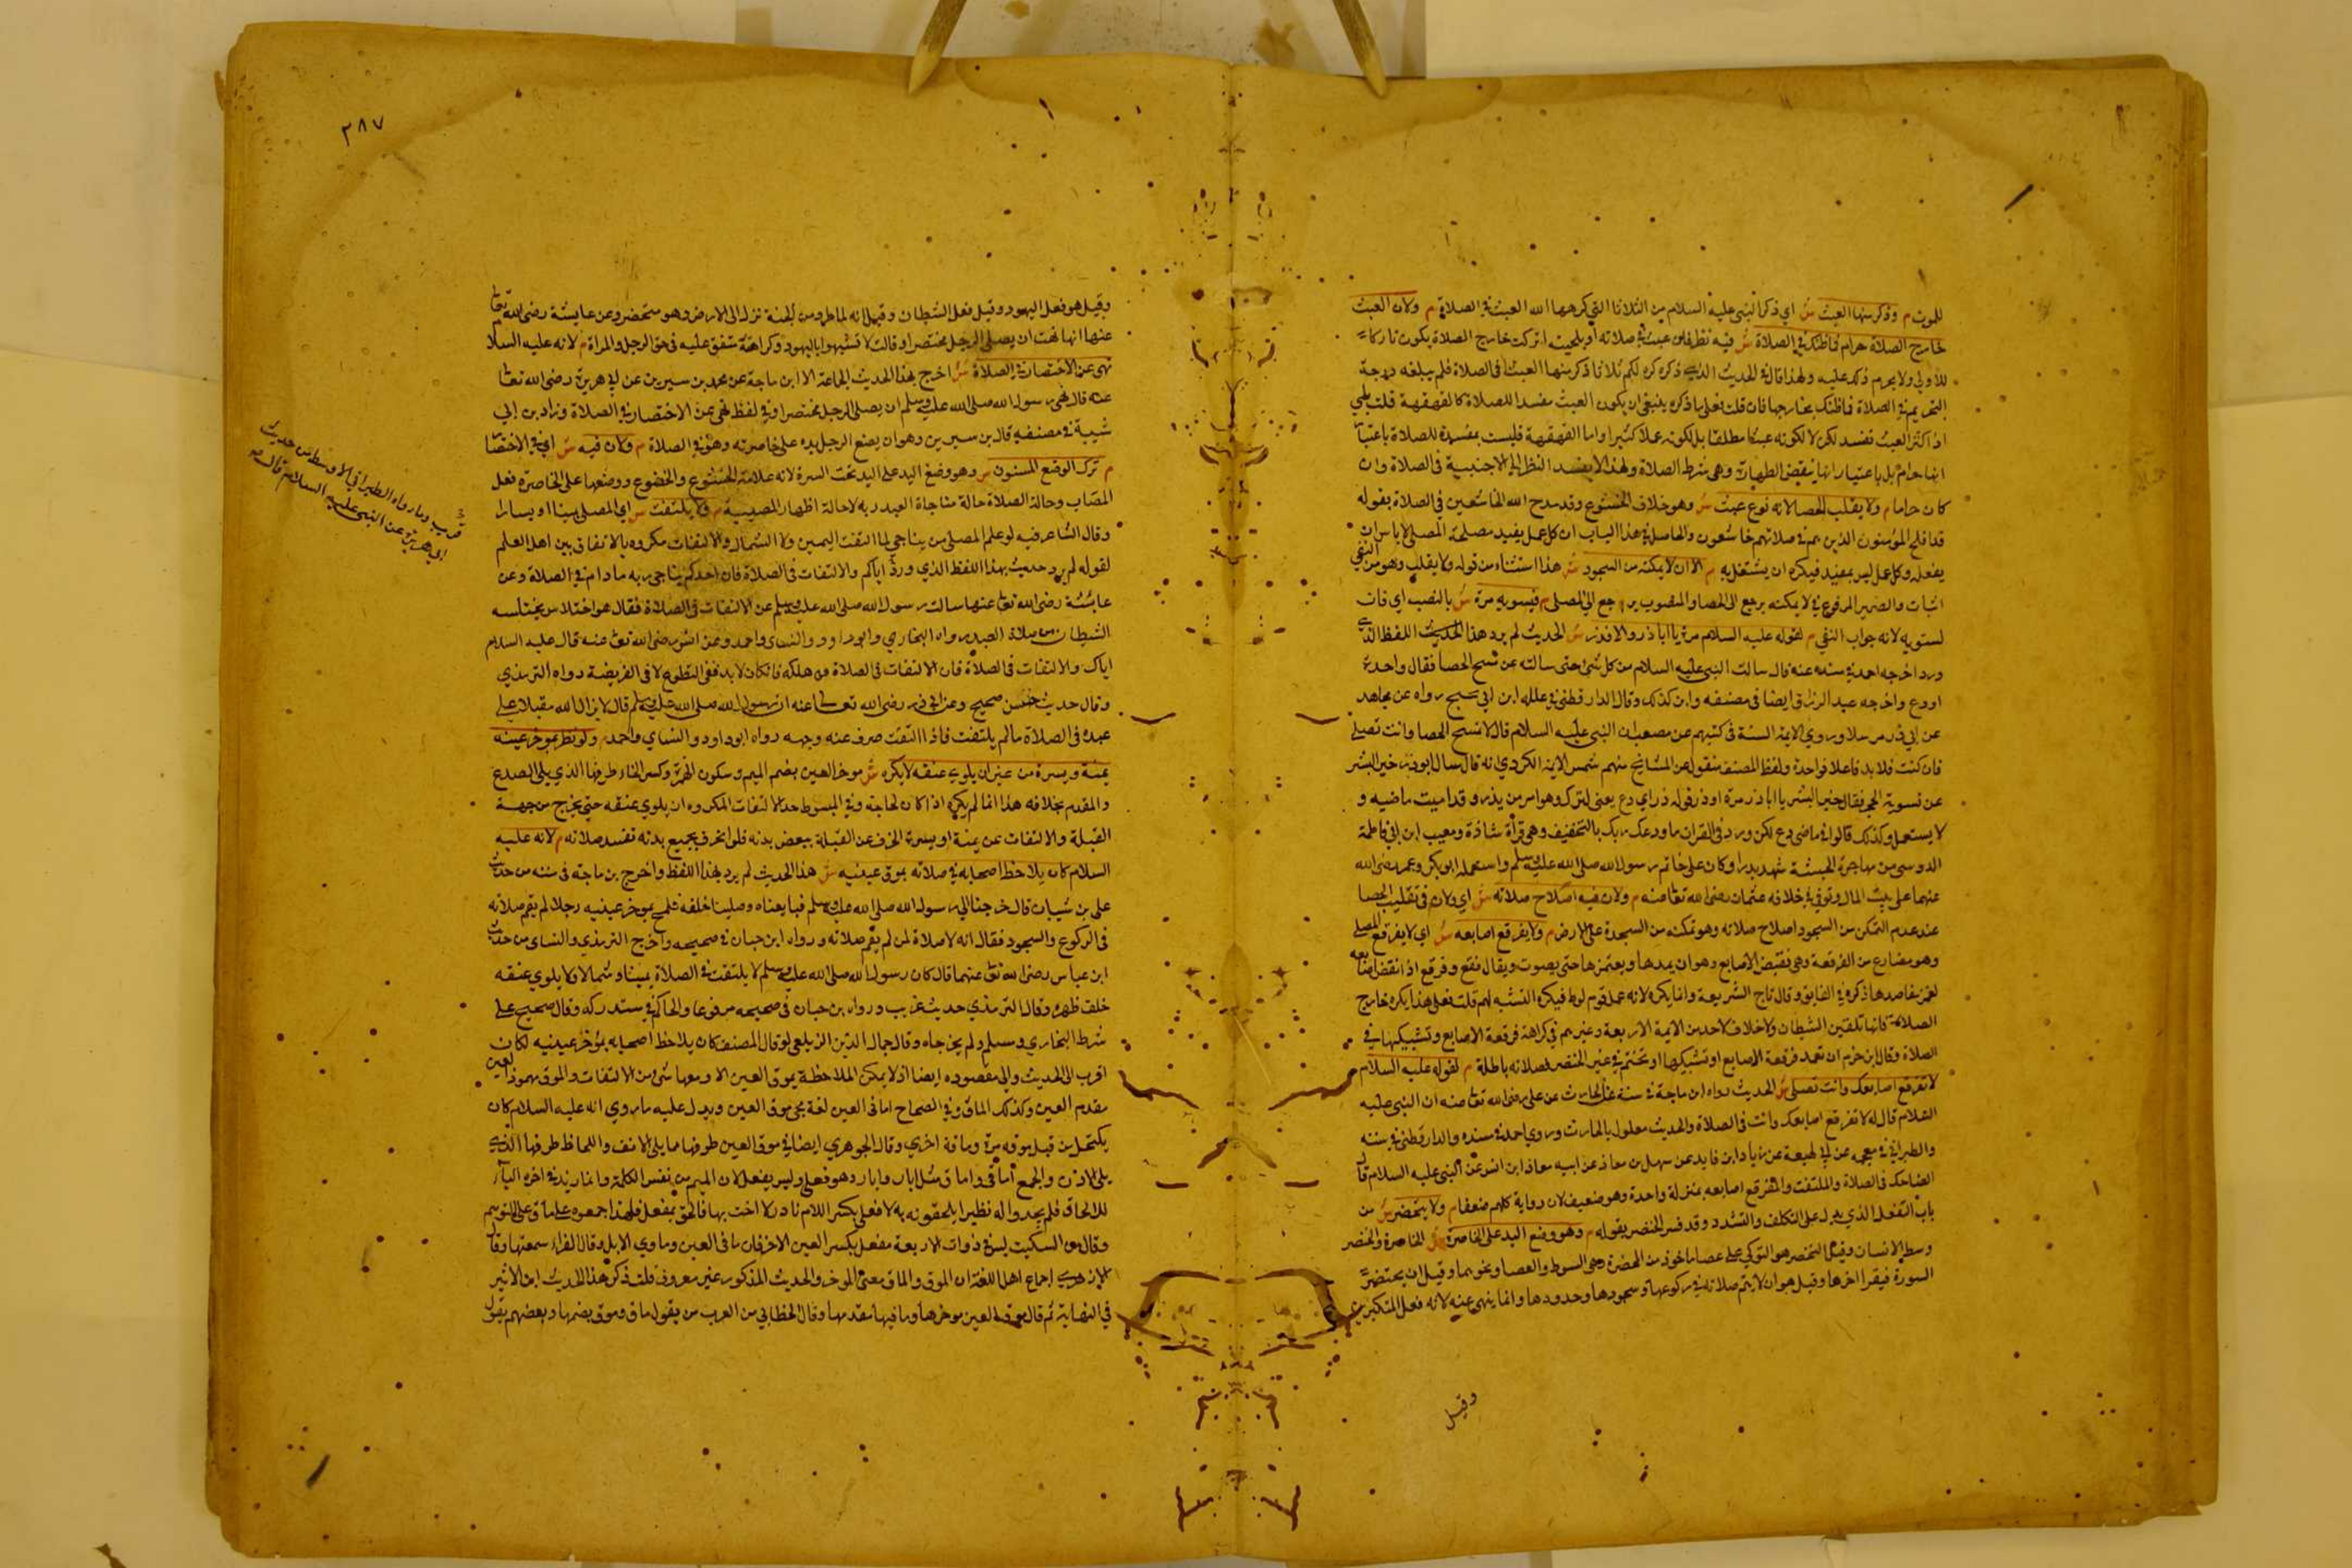 للموت م وذكر منها العبث ش اي ذكر النبي عليه السلام من الثلاثا التي كرهها الله العبث في الصلاة م ولان العبث
خارج الصلاة حرام فما ظنك في الصلاة ش فيه نظر فان عبث في صلاته او بلحيته خارج الصلاة يكون تاركا
للاولي ولا يحرم ذلك عليه ولهذا قال في الحديث الذي ذكره كره لكم ثلاثا ذكر منها العبث في الصلاة فلم يبلغه درجة
التحريم في الصلاة فما ظنك بخارجها فان قلت فعلي ما ذكره ينبغي ان يكون العبث مفسدا للصلاة كالقهقهة قلت بلي
اذا كثر العبث تفسد لكن لا لكونه عبثا مطلقا بل لكونه عملا كثيرا واما القهقهة فليست بمفسدة للصلاة باعتبار
انها حرام بل باعتبار انها تنقض الطهارة وهي شرط الصلاة ولهذا لا يفسد النظر الي الاجنبية في الصلاة وان
كان حراما م ولا يقلب الحصا لانه نوع عبث ش وهو خلاف الخشوع وقد مدح الله الخاشعين في الصلاة بقوله
قد افلح المؤمنون الذين هم في صلاتهم خاشعون والحاصل في هذا الباب ان كل عمل يفيد مصلحة المصلي لا باس ان
يفعله وكل عمل ليس بمفيد فيكره ان يشتغل به م الا ان لا يمكنه من السجود ش هذا استثناء من قوله ولا يقلب وهو من النفي
اثبات والضمير المرفوع في لا يمكنه يرجع الي الحصا والمنصوب يرجع الي المصلي م فيسويه مرة ش بالنصب اي فان
لسنويه لانه جواب النفي م لقوله عليه السلام مرة يا ابا ذر والا فذر ش الحديث لم يرد هذا الحديث اللفظ الذي
ورد اخرجه احمد في مسنده عنه قال سالت النبي عليه السلام من كل شي حتي سالته عن مسح الحصا فقال واحدة
او دع واخرجه عبد الرزاق ايضا في مصنفه وابن كذلك وقال الدارقطني في علله ابن ابي نجيح رواه عن مجاهد
عن ابي ذر مرسلا وروي الايمة الستة في كتبهم عن ان النبي عليه السلام قال لا تمسح الحصا وانت تصلي
فان كنت فلا بد فاعلا فواحدة ولفظ المصنف منقول عن المشايخ منهم شمس الايمة الكردري انه قال سال ابو ذر خير البشر
عن تسوية الحجر فقال خير البشر يا ابا ذر مرة او ذر قوله ذر اي دع يعني اترك وهو امر من يذر وقد اميت ماضيه و
لا يستعمل وكذلك قالوا في ماضي دع لكن ورد في القران ما ودعك ربك بالتخفيف وهي قرأة شاذة ومعيب ابن ابي فاطمة
الدوسي من مهاجرة الحبشة شهد بدرا وكان علي خاتم رسول الله صلى الله عليه وسلم واستعمله ابو بكر وعمر رضي الله
عنهما على بيت المال وتوفي في خلافه عثمان رضي الله تعا عنه م ولان فيه اصلاح صلاته ش اي ولان في تقليب الحصا
عند عدم التمكن من السجود اصلاح صلاته وهو تمكنه من السجدة على الارض م ولا يفرقع اصابعه ش اي لا يفرقع المصلي
وهو مضارع من الفرقعة وهي تنقيض الاصابع وهو ان يمدها ويغمزها حتى يصوت ويقال فقع وفرقع اذا انقض اصابعه
لغمز مفاصدها ذكره في الفايق وقال تاج الشريعة وانما يكره لانه عمل قوم لوط فيكره التشبه لهم قلت فعلى هذا يكره خارج
الصلاة فانها تلقين الشيطان ولا خلاف لاحد من الايمة الاربعة وغيرهم في كراهة فرقعة الاصابع وتشبيكها في
الصلاة وقال ابن حزم ان تعمد فرقعة الاصابع او تشبيكها او تختم في غير الخنصر فصلاته باطلة م لقوله عليه السلام
لا تفرقع اصابعك وانت تصلي ش الحديث رواه ابن ماجة في سننه عن الحارث عن علي رضي الله تعا عنه ان النبي عليه
السلام قال له لا تفرقع اصابعك وانت في الصلاة والحديث معلول بالحارث وروي احمد في مسنده والدارقطني في سننه
والطبراني في معجمه عن ابن لهيعة عن زياد ابن فايد عن سهل بن معاذ عن ابيه معاذ ابن انس عن النبي عليه السلام قال
الضاحك في الصلاة والملتفت والمفرقع اصابعه بمنزلة واحدة وهو ضعيف لان رواية كلهم ضعفا م ولا يتخصر ش من
باب التفعل الذي يدل على التكلف والتشدد وقد فسر الخصر بقوله م وهو وضع اليد على الخاصرة ش الخاصرة والخصر
وسط الانسان وقيل التخصر هو التوكي على عصا ماخوذ من المخصرة وهي السوط والعصا ونحوهما وقيل ان يختصر
السورة فيقرا اخرها وقيل هو ان لا يتم صلاته في ركوعها وسجودها وحدودها وانما ينهي عنه لانه فعل المتكبرين
وقيل
٣٨٧
وقيل هو فعل اليهود وقيل فعل الشيطان وقيل انه لما طرد من الجنة نزل الى الارض وهو متخصر وعن عايشة رضي الله تعا
عنها انها نهت ان يصلي الرجل مختصرا وقالت لا تشبهوا باليهود وكراهته متفق عليه في حق الرجل والمراة م لانه عليه السلا
نهى عن الاختصار في الصلاة ش اخرج هذا الحديث الجماعة الا ابن ماجة عن محمد بن سيرين عن ابي هريرة رضي الله تعا
عنه قال نهي رسول الله صلى الله عليه وسلم ان يصلي الرجل مختصرا وفي لفظ نهي عن الاختصار في الصلاة وزاد بن ابي
شيبة في مصنفه قال بن سيرين وهو ان يضع الرجل يده على خاصرته وهو في الصلاة م ولان فيه ش اي في الاختصا
م ترك الوضع المسنون ش وهو وضع اليد على اليد تحت السرة لانه علامة الخشوع والخضوع ووضعها على الخاصرة فعل
المصاب وحالة الصلاة حالة مناجاة العبد ربه لا حالة اظهار المصيبة م ولا يلتفت ش اي المصلي يمينا او يسارا
وقال الشاعر فيه لو علم المصلي من يناجي لما التفت اليمين ولا الشمال والالتفات مكروه بالاتفاق بين اهل العلم
لقوله لم يرد حديث بهذا اللفظ الذي ورد اياكم والالتفات في الصلاة فان احدكم يناجي ربه ما دام في الصلاة وعن
عايشة رضي الله تعا عنها سالت رسول الله صلى الله عليه وسلم عن الالتفات في الصلاة فقال هو اختلاس يختلسه
الشيطان من صلاة العبد رواه البخاري وابو داود والنساي واحمد وعن انس رضي الله تعا عنه قال عليه السلام
اياك والالتفات في الصلاة فان الالتفات في الصلاة هلكه فان كان لا بد ففي التطوع لا في الفريضة رواه الترمذي
وقال حديث حسن صحيح وعن ابي ذر رضي الله تعالى عنه ان رسول الله صلى الله عليه وسلم قال لا يزال الله مقبلا على
عبده في الصلاة ما لم يلتفت فاذا التفت صرف عنه وجهه رواه ابو داود والنساي واحمد م ولو نظر بموخر عينه
يمنة ويسرة من غير ان يلوي عنقه لا يكره ش موخر العين بضم الميم وسكون الهمزة وكسر الخاء طرفها الذي يلي الصدغ
والمقدم بخلافه هذا انما لم يكره اذا كان لحاجة وفي المبسوط حد الالتفات المكروه ان يلوي عنقه حتى يخرج من جهة
القبلة والالتفات عن يمنة او يسرة انحرف عن القبلة ببعض بدنه فلو انحرف بجميع بدنه تفسد صلاته م لانه عليه
السلام كان يلاحظ اصحابه في صلاته بموق عينيه ش هذا الحديث لم يرد بهذا اللفظ واخرج بن ماجة في سننه من حديث
علي بن شيبان قال خرجنا الي رسول الله صلى الله عليه وسلم فبايعناه وصلينا خلفه فلمح بموخر عينيه رجلا لم يقم صلاته
في الركوع والسجود فقال انه لا صلاة لمن لم يقم صلاته ورواه ابن حبان في صحيحه واخرج الترمذي والنساي من حديث
ابن عباس رضي الله تعا عنهما قال كان رسول الله صلى الله عليه وسلم لا يلتفت في الصلاة يمينا وشمالا ولا يلوي عنقه
خلف ظهره وقال الترمذي حديث غريب ورواه بن حبان في صحيحه مرفوعا والحاكم في مستدركه وقال صحيح على
شرط البخاري ومسلم ولم يخرجاه وقال جمال الدين الزيلعي لو قال المصنف كان يلاحظ اصحابه بمؤخر عينيه لكان
اقرب الى الحديث والي مقصوده ايضا اذ لا يمكن الملاحظة بموق العين الا ومعها شي من الالتفات والموق مهموز العين
مقدم العين وكذلك الماق وفي الصحاح اماقي العين لغة في موق العين ويدل عليه ما روي انه عليه السلام كان
يكتحل من قبل موقه مرة وماقه اخري وقال الجوهري ايضا في موق العين طرفها مما يلي الانف واللحاظ طرفها الذي
يلي الاذن والجمع اماقي واماق مثل ابار وابار وهو فعلي وليس بمفعل لان الميم من نفس الكلمة وانما زيد في اخره الياء
للالحاق فلم يجدوا له نظيرا يلحقونه به لا فعلي بكسر اللام نادر لا اخت بها فالحق بمفعل فلهذا جمعوه على ماق على التوهم
وقال بن السكيت ليس في ذوات الاربعة مفعل بكسر العين الا حرفان ماقي العين وماوي الابل وقال الفراء سمعتها وقال
الازهري اجماع اهل اللغة ان الموق والماق معنى الموخر والحديث المذكور غير معروف قلت ذكر هذا الحديث ابن الاثير
في النهاية ثم قال موق العين موخرها وماقيها مقدمها وقال الخطابي من العرب من يقول ماق وموق بضمها وبعضهم يقول
قريب وما رواه الطبراني في الاوسط من حديث
ابي هريرة عن النبي عليه السلام قال